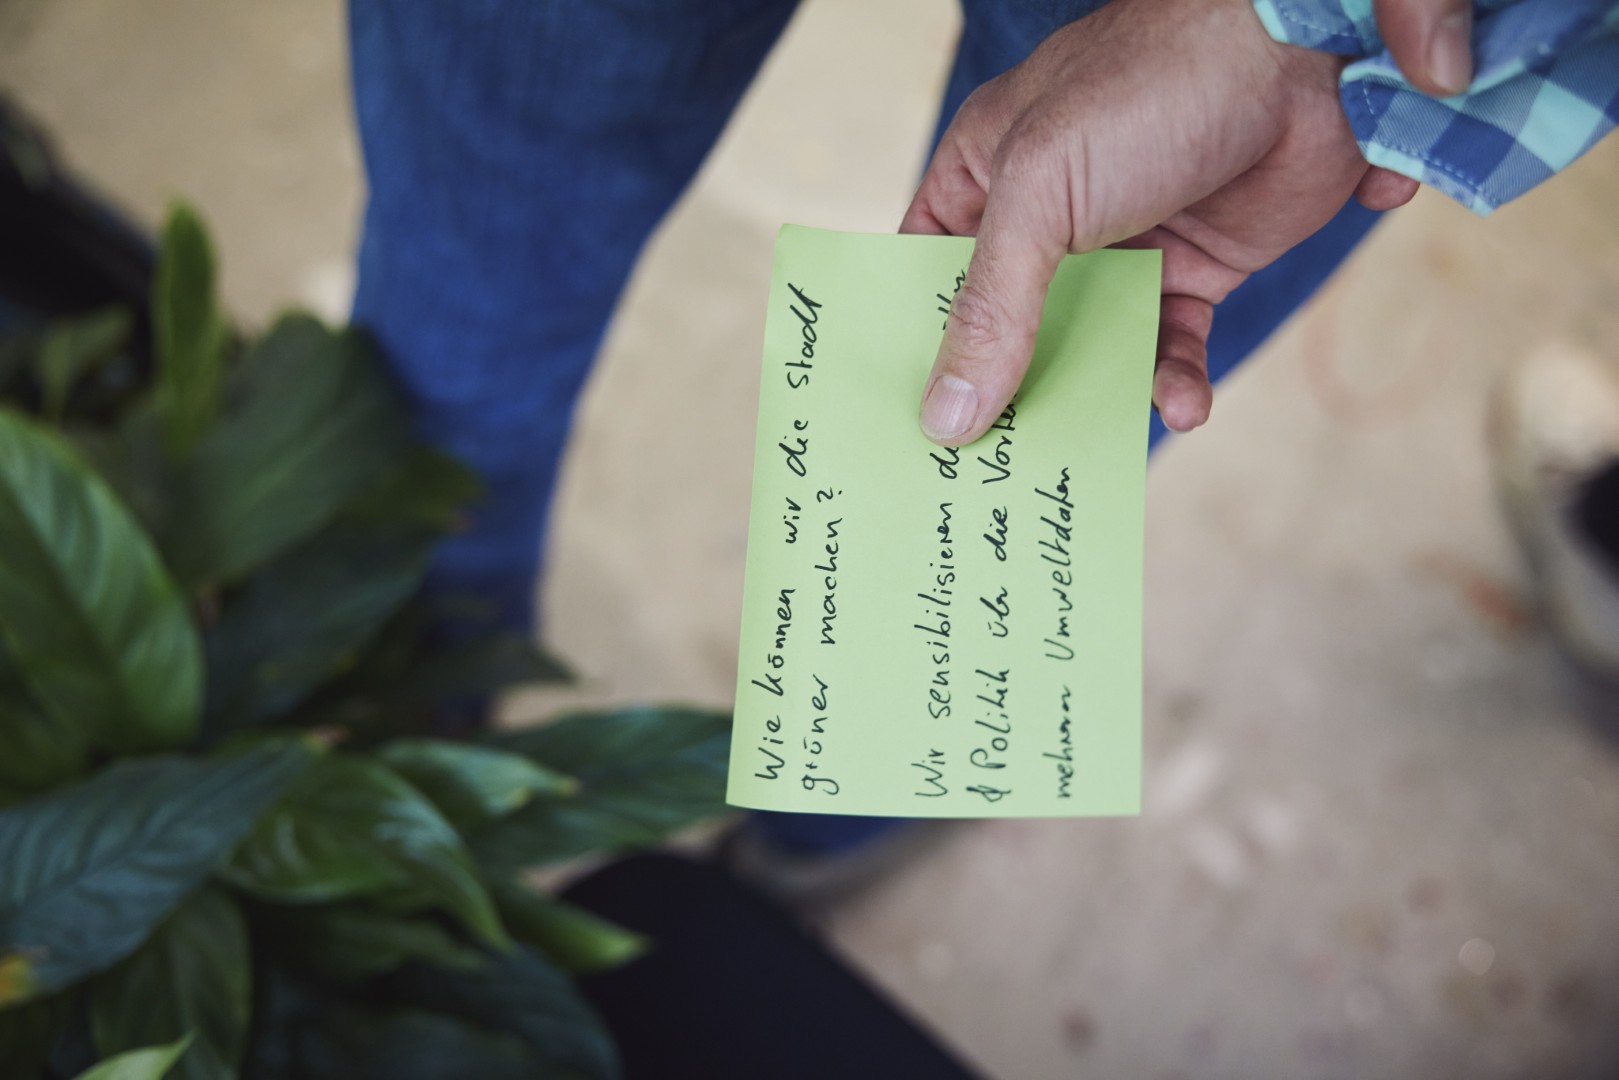 Wie können wir die Stadt
grüner machen?
Wir sensibilisieren
& Politik über die
mehreren Umweltdaten